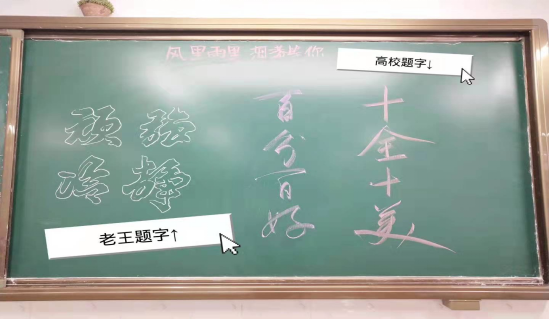 风里雨里
高校题字↓
十全十美
百分百好
顽强
冷静
老王题字↑